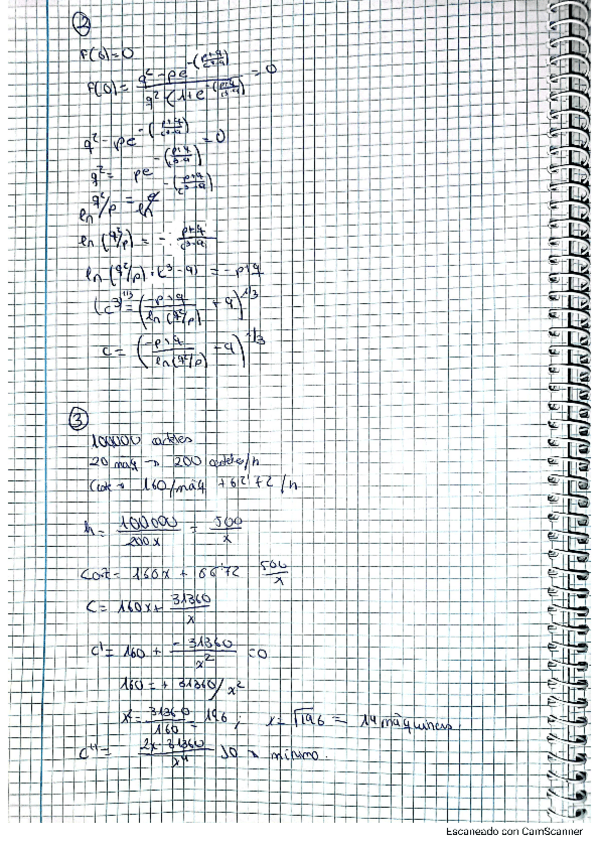 ②
F(0)=0
F(0) = (q² - pe^-((p+q)/(c³-q))) / (q² (1+e^-((p+q)/(c³-q)))) = 0
q² - pe^-((p+q)/(c³-q)) = 0
q² = pe^-((p+q)/(c³-q))
ln q²/p = ln e^-((p+q)/(c³-q))
ln (q²/p) = - (p+q)/(c³-q)
ln (q²/p) · (c³-q) = -p+q
(c³)^1/3 = (-p+q / ln (q²/p) + q)^1/3
c = (-p+q / ln (q²/p) + q)^1/3
③
100000
20 máq → 200 /h
Cost → 160/máq + 62'72 /h
h = 100000 / 200x = 500 / x
Cost = 160x + 6672 500/x
C = 160x + 31360 / x
C' = 160 + -31360 / x² = 0
160 = + 31360 / x²
x² = 31360 / 160 = 196 ; x = √196 = 14 máquines.
C'' = 2x·31360 / x⁴ >0 mínimo.
Escaneado con CamScanner